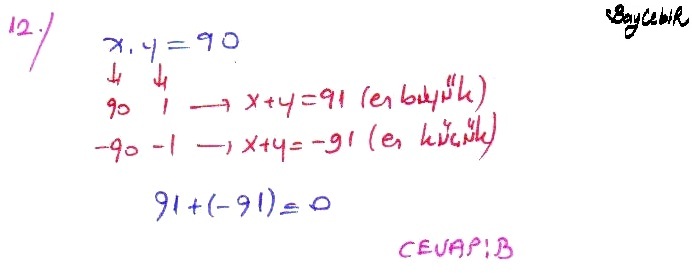 BayCebiR
12./
x. y = 90
↓ ↓
90 1 → x+y = 91 (en büyük)
-90 -1 → x+y = -91 (en küçük)
91 + (-91) = 0
CEVAP: B